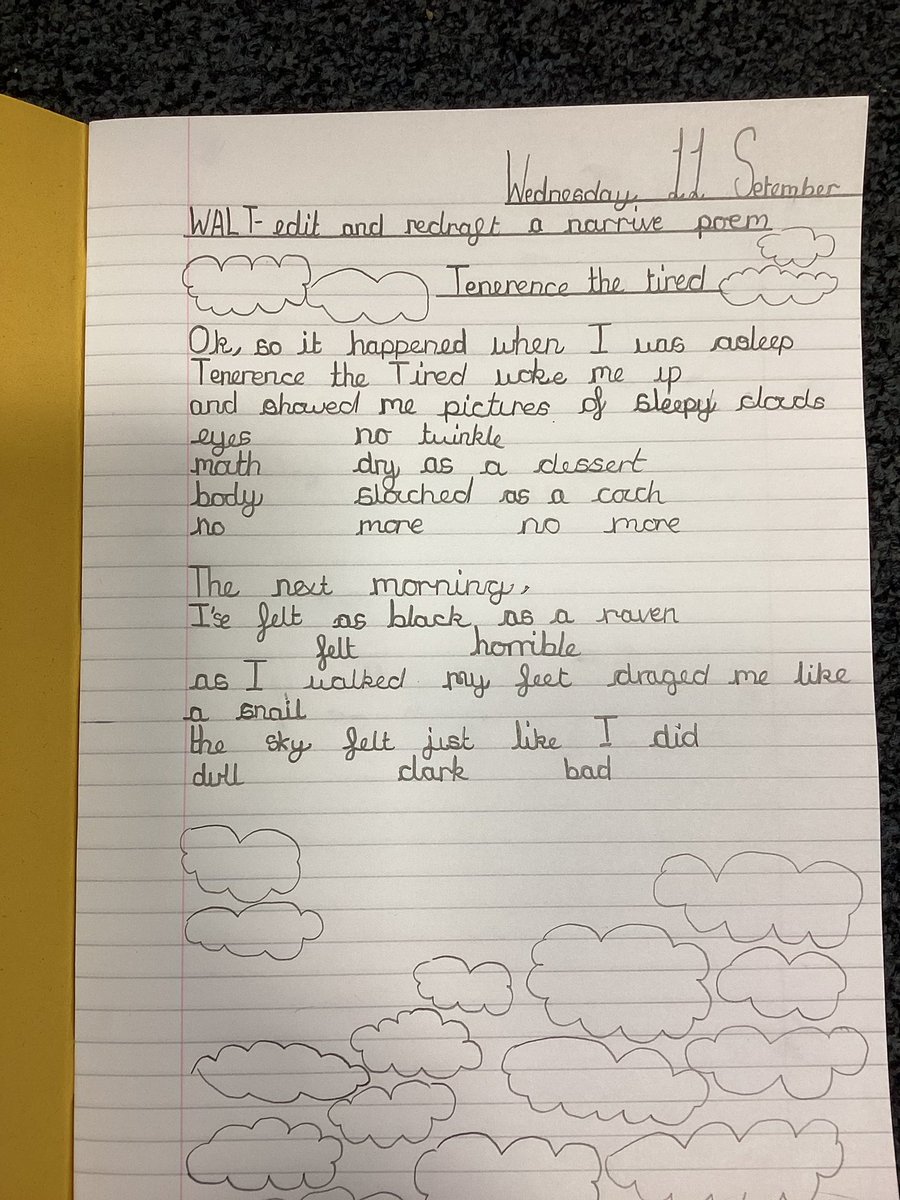 Wednesday, 11 Setember
WALT- edit and redraft a narrive poem
Tenerence the tired
Ok, so it happened when I was asleep
Tenerence the Tired woke me up
and showed me pictures of sleepy clouds
eyes no twinkle
math dry as a dessert
body slached as a coach
no more no more
The next morning,
I'se felt as black as a raven
felt horrible
as I walked my feet draged me like
a snail
the sky felt just like I did
dull dark bad